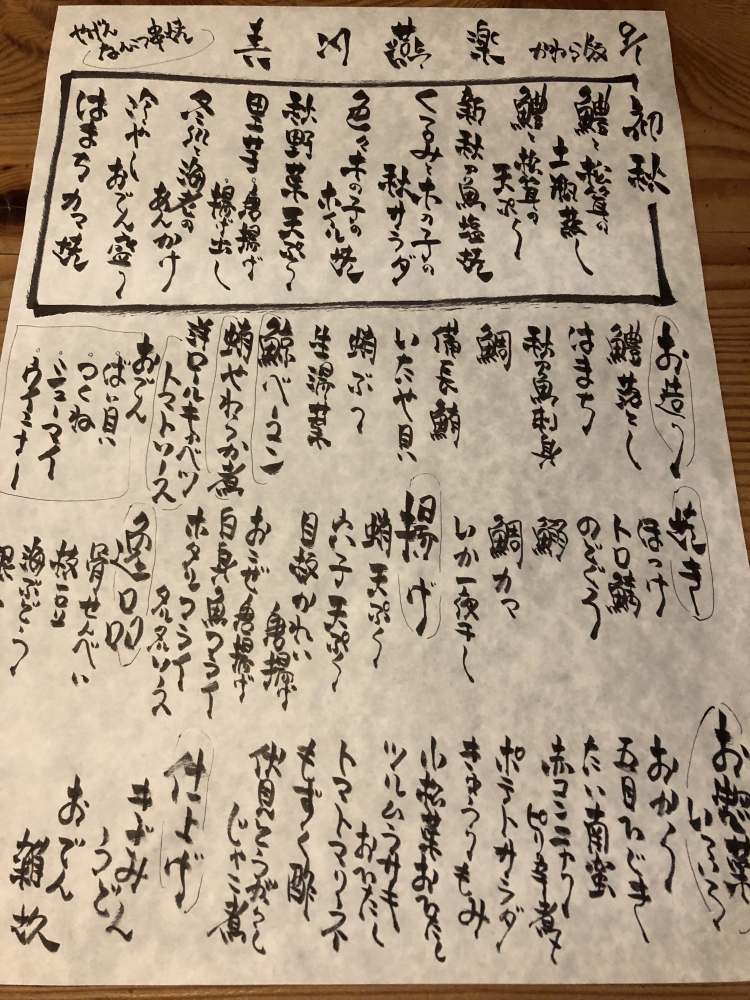 初秋
鱧と松茸の
土瓶蒸し
鱧と松茸の
天ぷら
新秋刀魚塩焼
くるみと木の子の
秋サラダ
色々木の子の
ホイル焼
秋野菜天ぷら
里芋 唐揚げ
揚げ出し
冬瓜と海老の
あんかけ
冷やし
おでん盛り
はまちカマ焼
やげん
なんこつ串焼
お造り
鱧落とし
はまち
秋刀魚刺身
鯛
備長鮪
いたや貝
生湯葉
鯨ベーコン
ロールキャベツ
トマトソース
おでん
ばい貝
つくね
シューマイ
ウインナー
焼き
ほっけ
トロ鯖
のどぐろ
鯛カマ
いか一夜干し
揚げ
天ぷら
穴子天ぷら
目板かれい
唐揚げ
おこぜ唐揚げ
白身魚フライ
ホタテフライ
タルタルソース
逸品
骨せんべい
枝豆
海ぶどう
おから
五目ひじき
たい南蛮
赤コンニャク
ピリ辛煮
ポテトサラダ
きゅうりもみ
小松菜おひたし
ツルムラサキ
おひたし
トマトスライス
もずく酢
伏見とうがらし
じゃこ煮
仕上げ
きざみ
うどん
おでん
雑炊